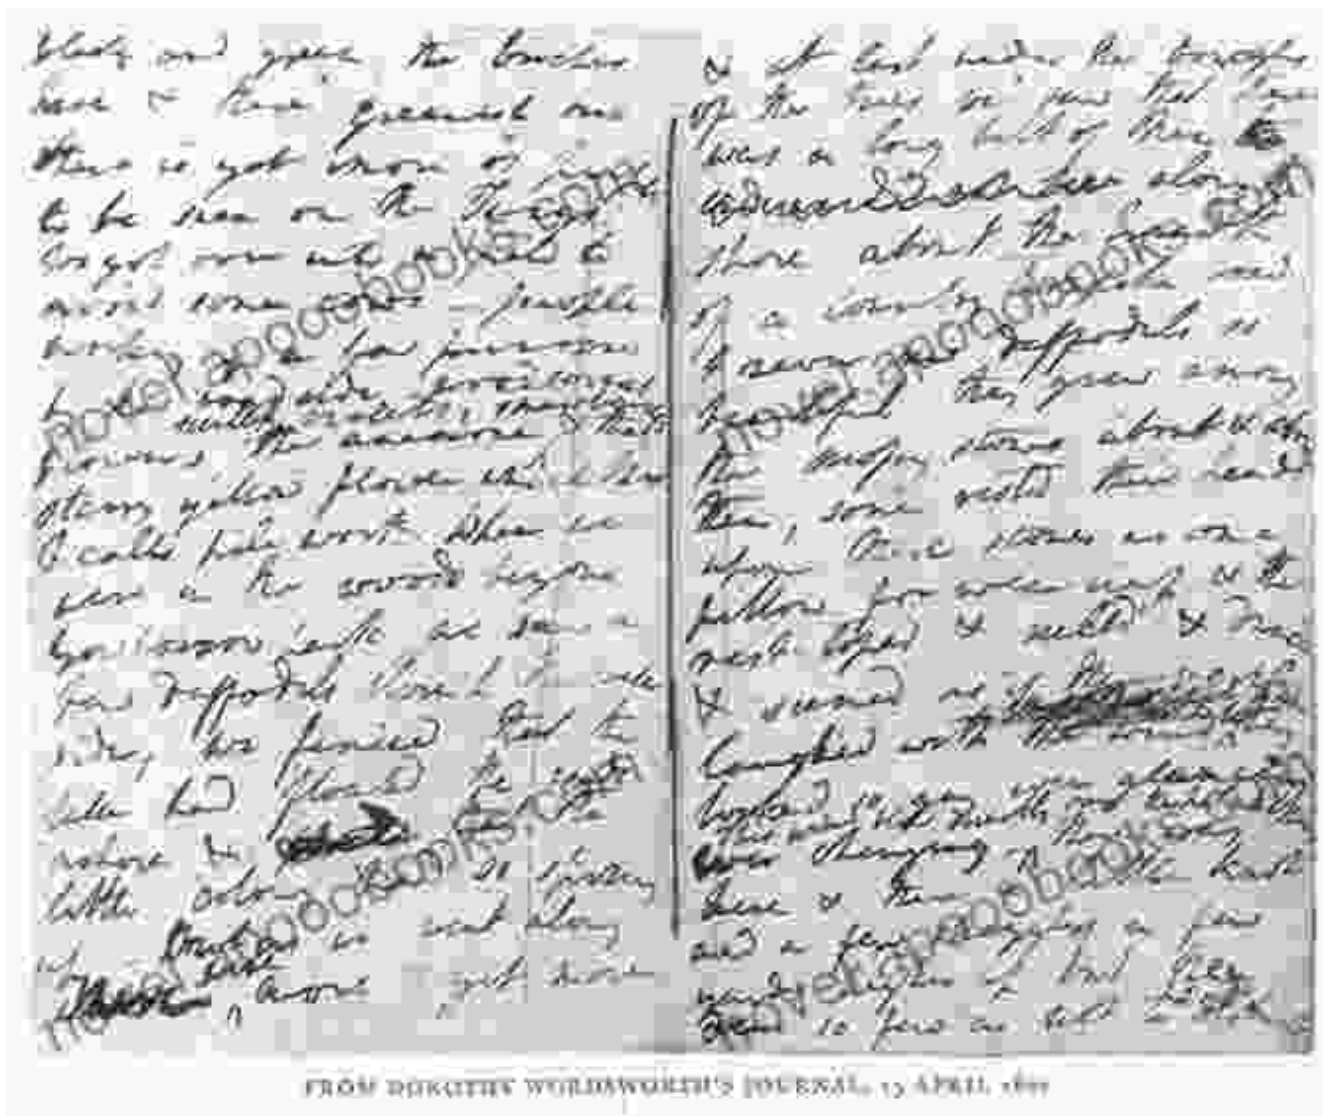 black and green the birches
here & there greenish but
there is yet more of purple
to be seen on the Twigs
We got over into a field to
avoid some cows - people
working a few primroses
by the road side woodsorrel
scentless violets, strawberries
flowers the anemone & that
starry yellow flower which Mrs
C calls pile wort. When we
were in the woods beyond
Gowbarrow park we saw a
few daffodils close to the water
side, we fancied that the
lake had floated the seeds
ashore & that the
little colony had so sprung
up But as we went along
there were more & yet more
& at last under the boughs
of the trees we saw that there
was a long belt of them
along the
shore about the breadth
of a country turnpike road
I never saw daffodils so
beautiful they grew among
the mossy stones about & about
them, some rested their heads
upon these stones as on a
pillow for weariness & the
rest tossed & reeled & danced
& seemed as if they verily
laughed with the wind
looked so gay ever glancing
ever changing
here & there a little knot
and a few stragglers a few
yards higher up but they
were so few as not to
FROM DOROTHY WORDSWORTH'S JOURNAL, 15 APRIL 1802